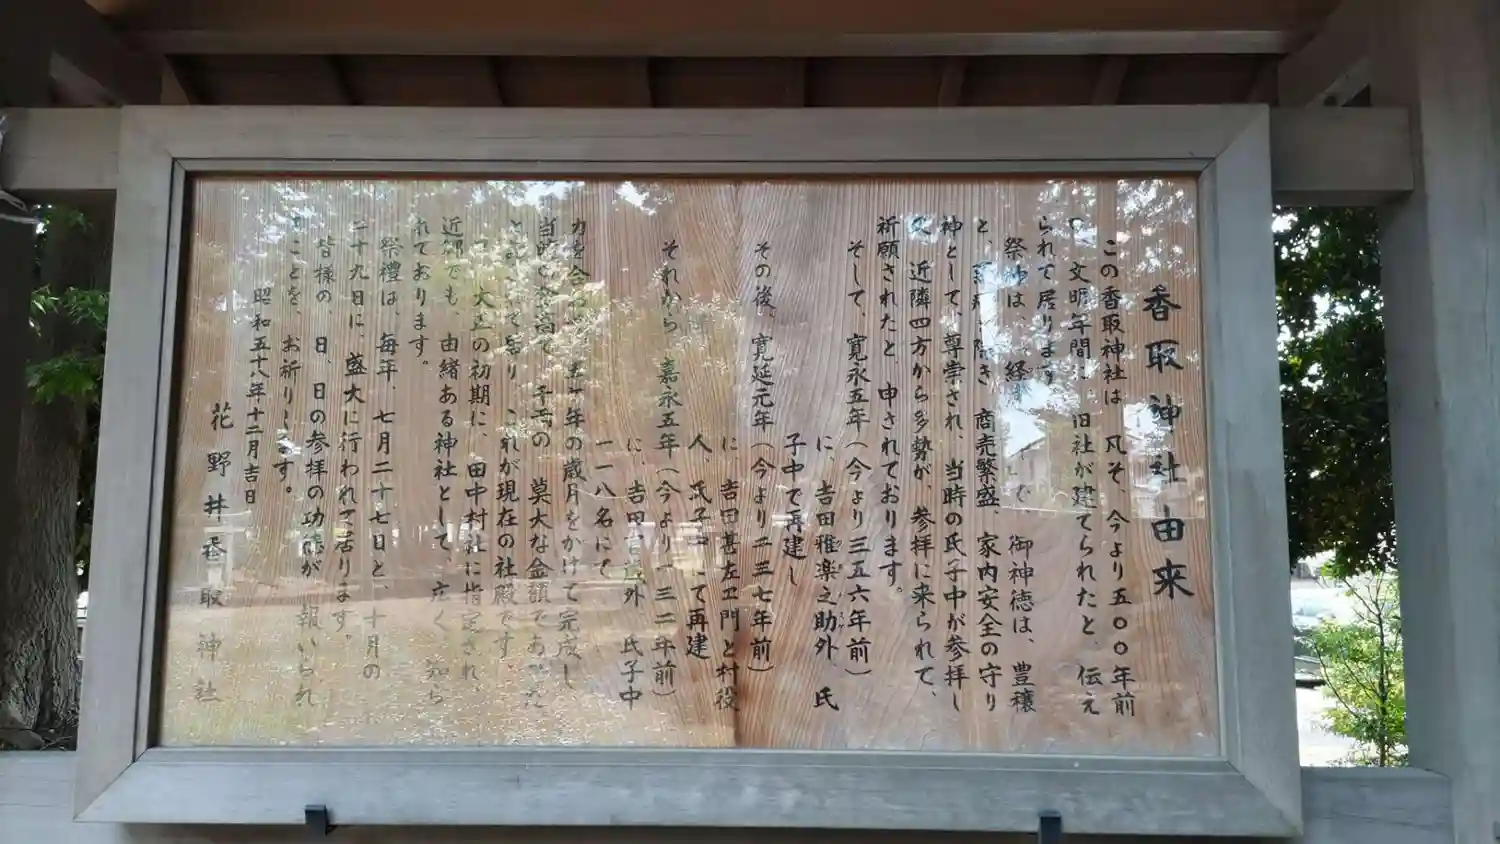 香取神社由来
この香取神社は 凡そ、今より五〇〇年前
文明年間に 旧社が建てられたと、伝え
られて居ります
祭神は 経 で、御神徳は、豊穣
と、 除き 商売繁盛、家内安全の守り
神として、尊崇され、当時の氏子中が参拝し
又 近隣四方から多勢が、参拝に来られて、
祈願されたと、申されております。
そして、寛永五年(今より三五六年前)
に、吉田雅楽之助外、氏
子中で再建し
その後、寛延元年(今より二三七年前)
に 吉田甚左ヱ門と村役
人、氏子中 て再建
それから 嘉永五年(今より一三二年前)
に、吉田 外 氏子中
一一八名にて
力を合 年の歳月をかけて完成し
当時 千両の、莫大な金額であ
と て居り これが現在の社殿です。
大正の初期に、田中村社に指定され、
近郷でも、由緒ある神社として、広く 知ら
れております。
祭禮は、毎年、七月二十七日と、十月の
二十九日に、盛大に行われて居ります。
皆様の、日、日の参拝の功徳が 報いられ
ことを、お祈りします。
昭和五十八年十二月吉日
花野井香取神社